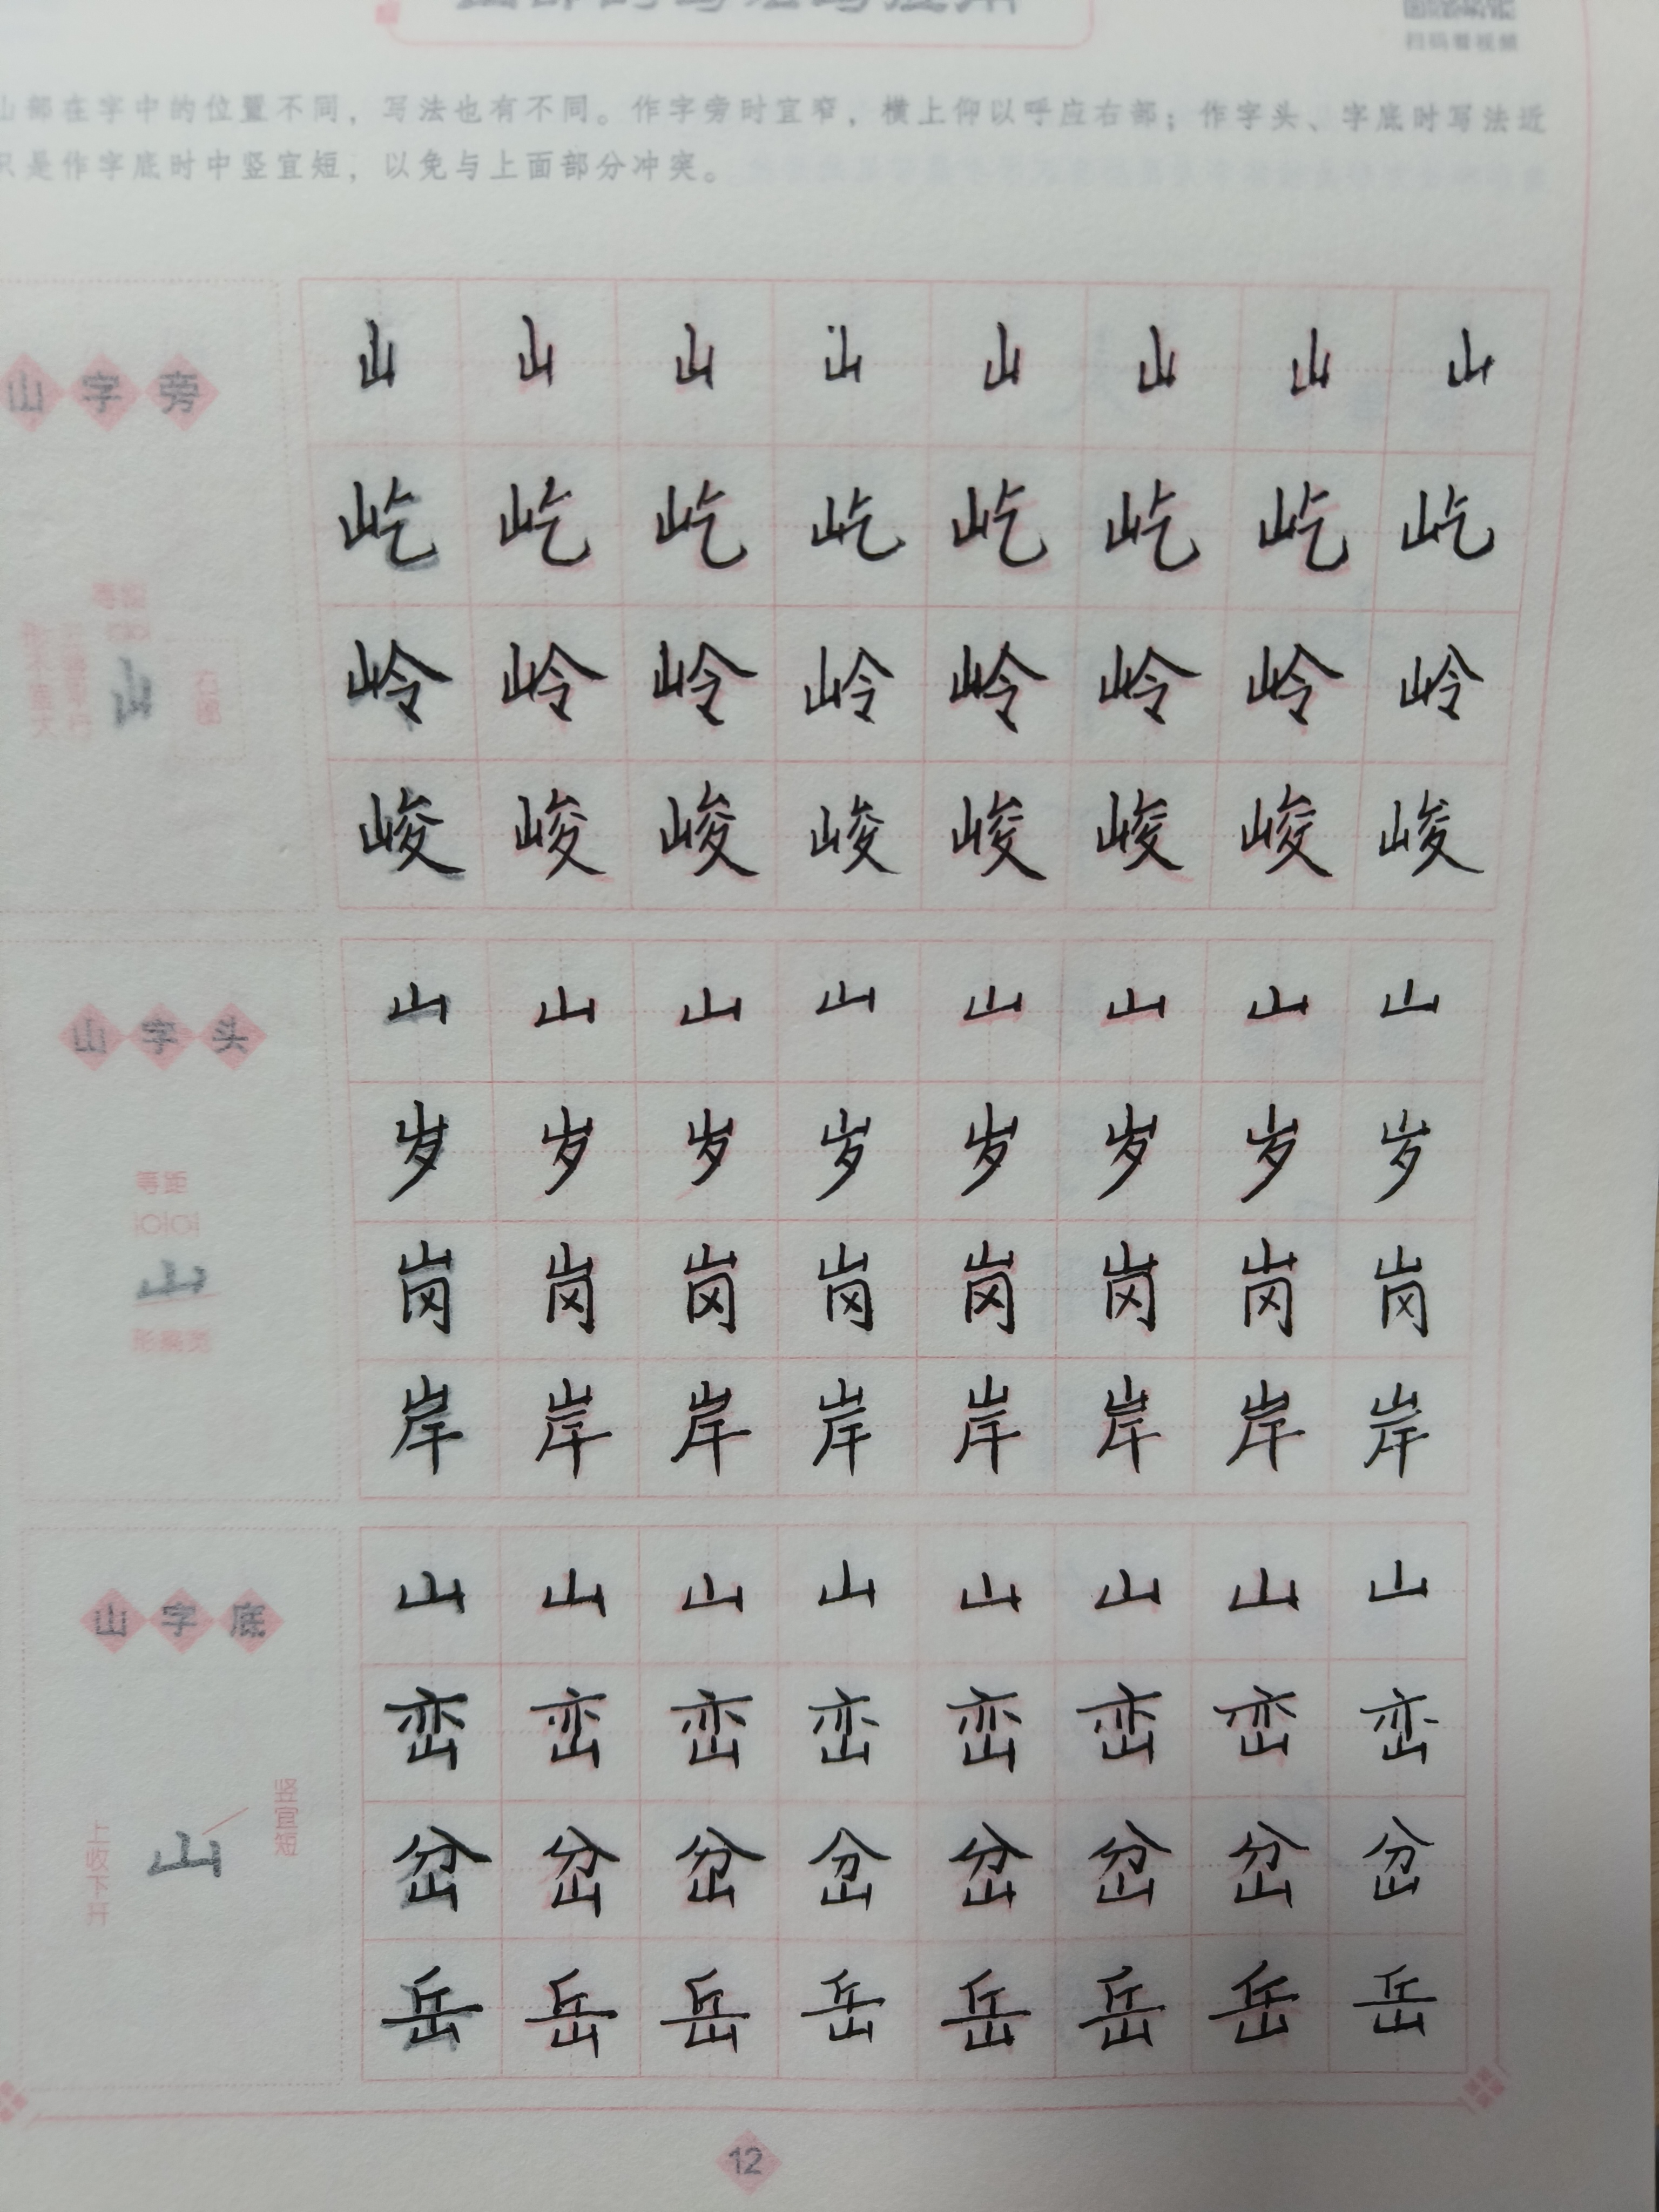 扫码看视频
山部在字中的位置不同，写法也有不同。作字旁时宜窄，横上仰以呼应右部；作字头、字底时写法近
只是作字底时中竖宜短，以免与上面部分冲突。
山字旁
等距
山
右部
山 山 山 山 山 山 山 山
屹 屹 屹 屹 屹 屹 屹 屹
岭 岭 岭 岭 岭 岭 岭 岭
峻 峻 峻 峻 峻 峻 峻 峻
山字头
等距
山
形宜宽
山 山 山 山 山 山 山 山
岁 岁 岁 岁 岁 岁 岁 岁
岗 岗 岗 岗 岗 岗 岗 岗
岸 岸 岸 岸 岸 岸 岸 岸
山字底
竖宜短
上收下开
山
山 山 山 山 山 山 山 山
峦 峦 峦 峦 峦 峦 峦 峦
岔 岔 岔 岔 岔 岔 岔 岔
岳 岳 岳 岳 岳 岳 岳 岳
12